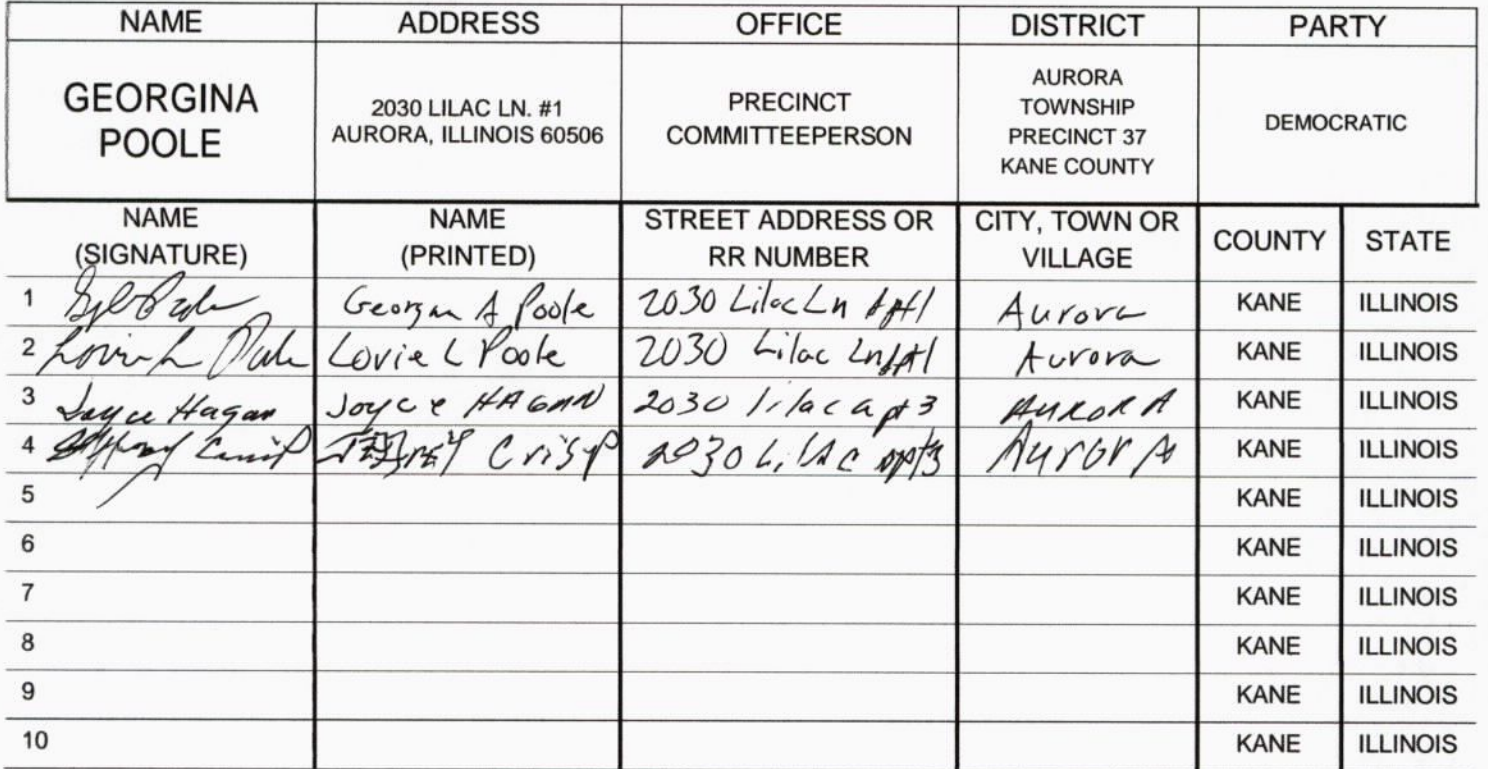 NAME ADDRESS OFFICE DISTRICT PARTY
GEORGINA POOLE
2030 LILAC LN. #1
AURORA, ILLINOIS 60506
PRECINCT
COMMITTEEPERSON
AURORA
TOWNSHIP
PRECINCT 37
KANE COUNTY
DEMOCRATIC
NAME (SIGNATURE)
NAME (PRINTED)
STREET ADDRESS OR RR NUMBER
CITY, TOWN OR VILLAGE
COUNTY
STATE
1 A Poole 2030 Lilac Ln Apt1 Aurora KANE ILLINOIS
2 Lovie L Lovie L Poole 2030 Lilac Ln Apt1 Aurora KANE ILLINOIS
3 Joyce Hagan Joyce HAGAN 2030 lilac apt 3 AURORA KANE ILLINOIS
4 Crisp 2030 LilAc apt3 AurorA KANE ILLINOIS
5 KANE ILLINOIS
6 KANE ILLINOIS
7 KANE ILLINOIS
8 KANE ILLINOIS
9 KANE ILLINOIS
10 KANE ILLINOIS